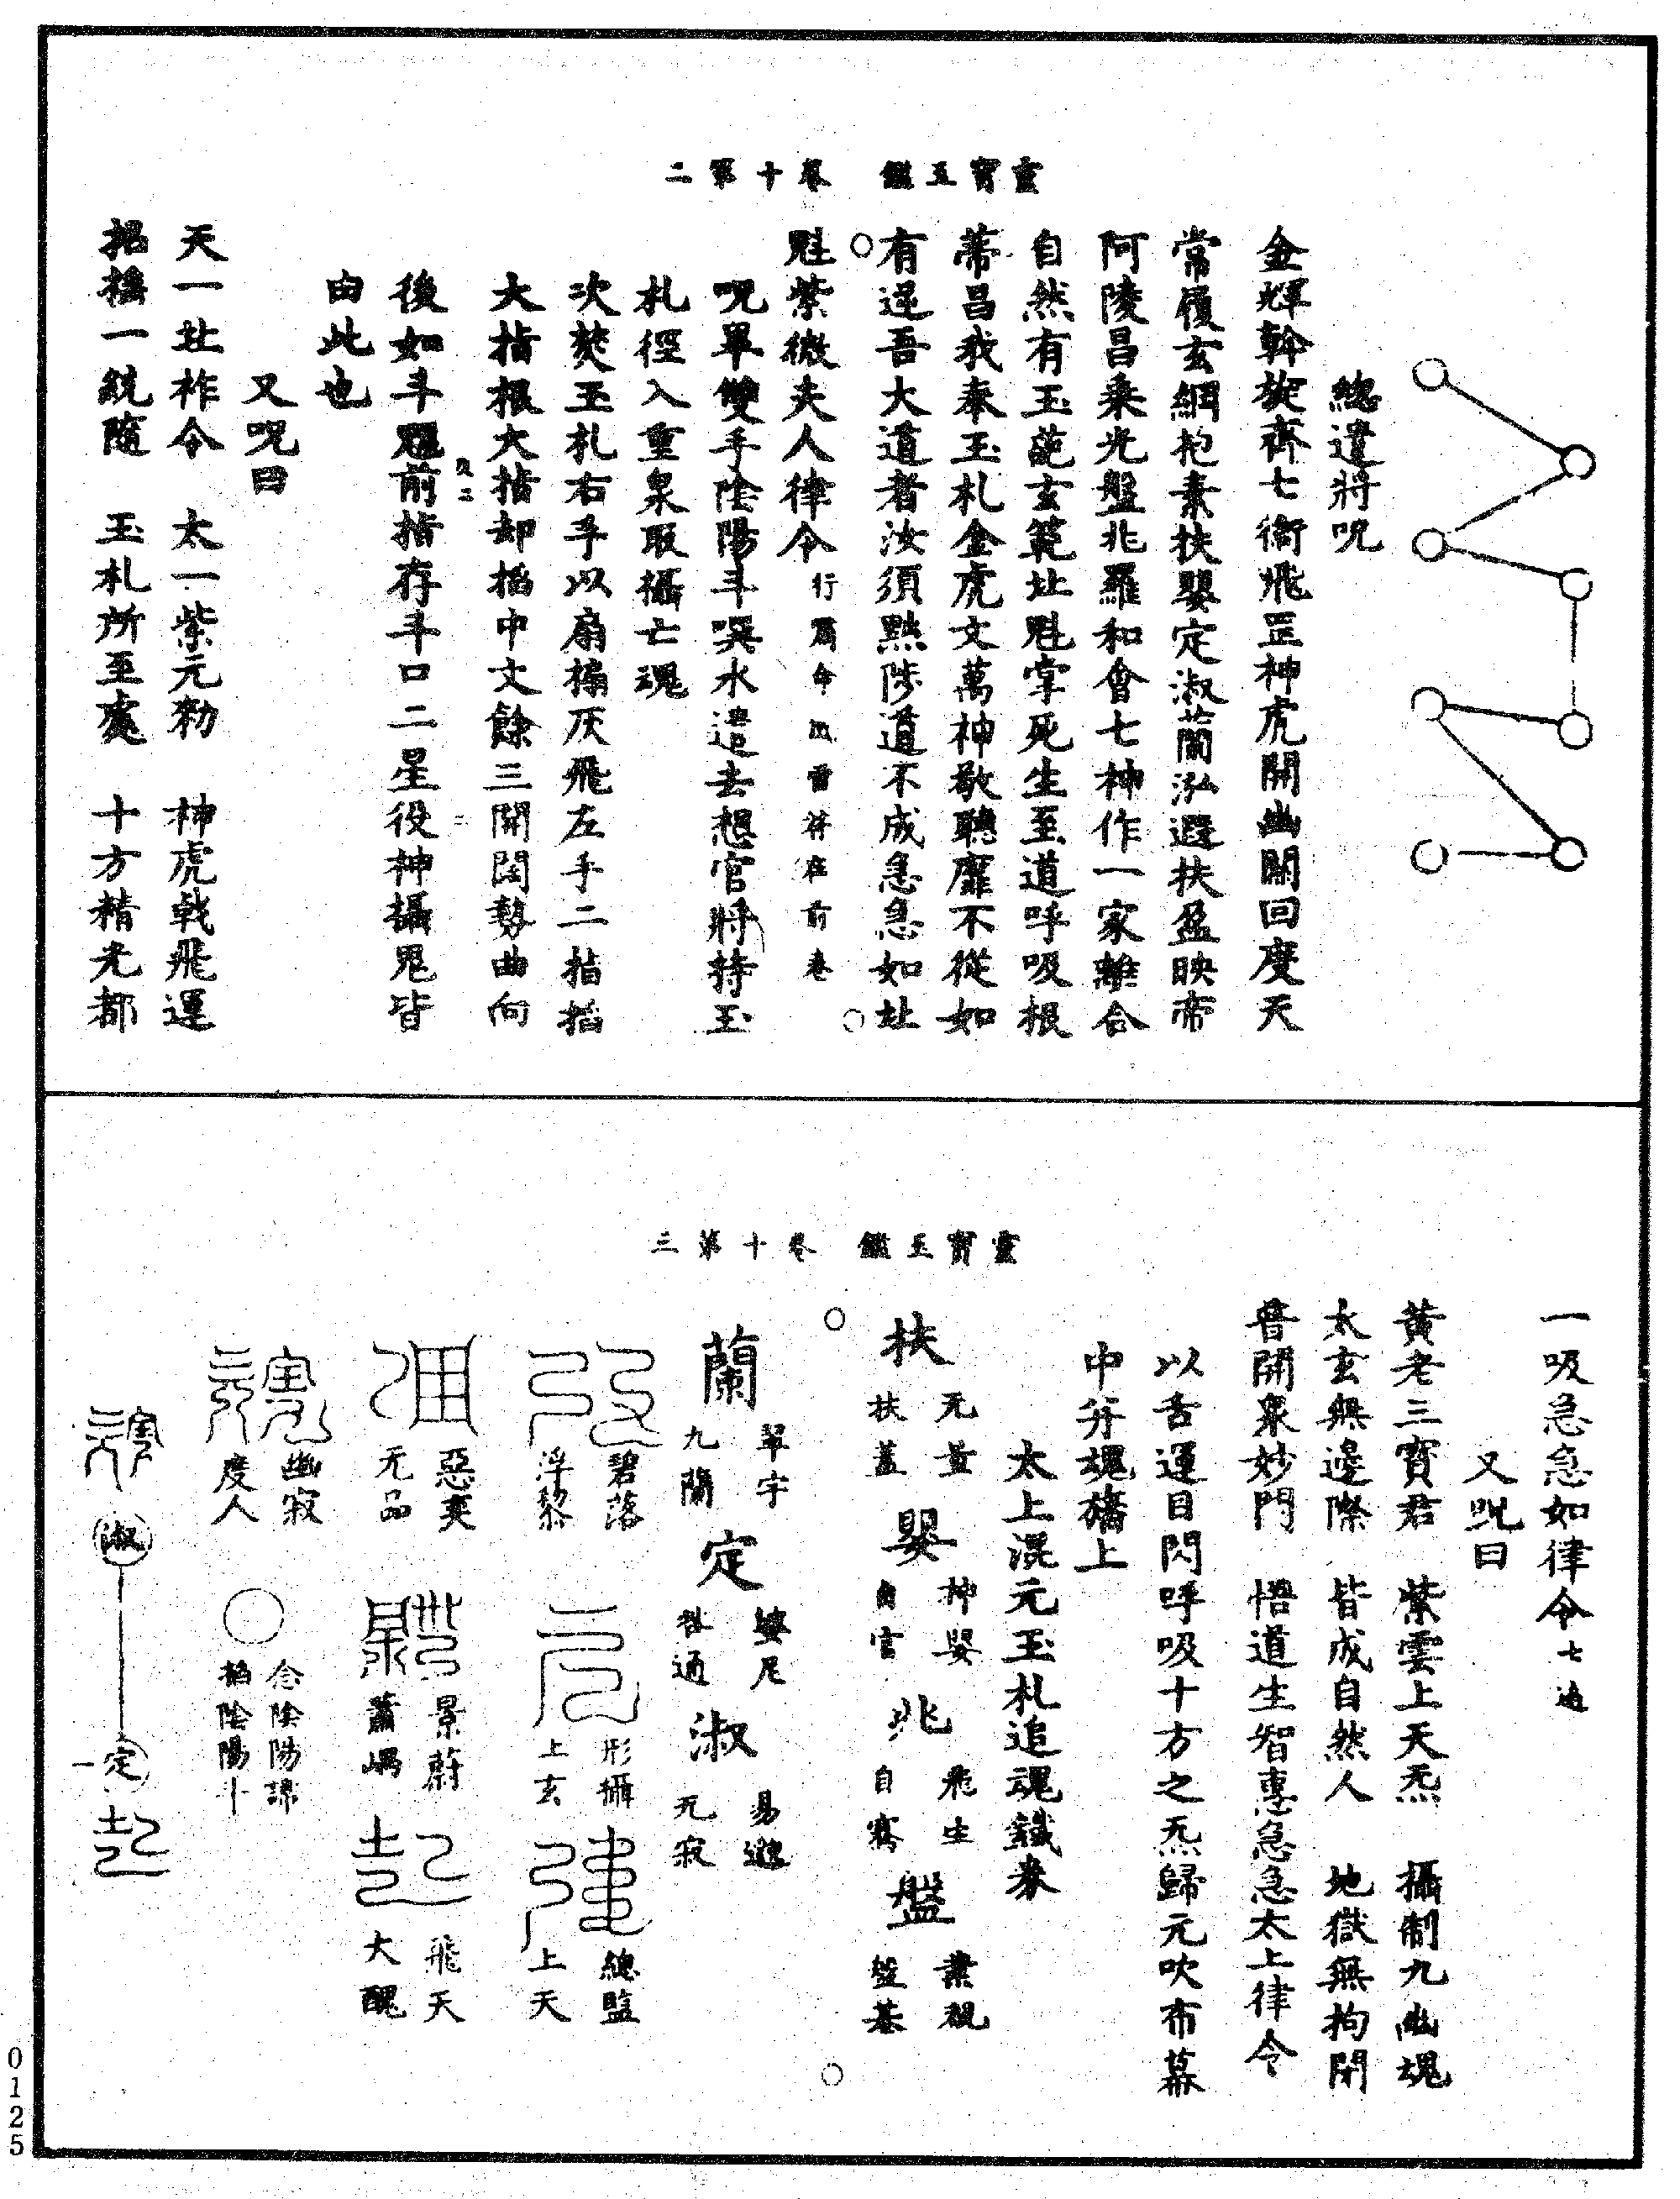 靈寶玉鑑　卷十第二
總遣將咒
金輝幹旋齊七衝飛罡神虎開幽關回度天
常履玄綱抱素扶嬰定淑蘭泓遐扶盈映帝
阿陵昌乘光盤兆羅和會七神作一家離合
自然有玉葩玄範北魁掌死生至道呼吸根
蒂昌我奉玉札金虎文萬神敬聽靡不從如
有逆吾大道者汝須黜陟道不成急急如北
魁紫微夫人律令行爾命 雷符在前卷
咒單雙手陰陽斗噀水遣去想官將持玉
札徑入重泉取攝亡魂
次焚玉札右手以扇搧灰飛左手二指掐
大指根大指却掐中文餘三開閉勢曲向
後如斗魁前指存斗口二星役神攝鬼皆
由此也
又咒曰
天一北柞令　太一紫元勑　神虎戟飛運
招搖一統隨　玉札所至處　十方精光都
靈寶玉鑑　卷十第三
一吸急急如律令七遍
又咒曰
黃老三寶君　紫雲上天炁　攝制九幽魂
太玄無邊際　皆成自然人　地獄無拘閉
普開衆妙門　悟道生智惠急急太上律令
以舌運目閃呼吸十方之炁歸元吹布幕
中并魂旛上
太上混元玉札追魂鐵券
扶 无量 扶蓋　嬰 神嬰 自官　兆 飛生 自騫　盤 業視 盤基
蘭 翠宇 九蘭　定 婁尼 社通　淑 易邈 元寂
碧落 浮黎　形攝 上玄　總監 上天
惡爽 无品　景蔚 蕭嵎　飛天 大醜
幽寂 度人　念陰陽諱 掐陰陽斗
淑　定
0125